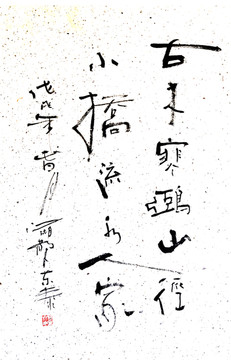 古木寒鵶山徑
小橋流水人家
戊戌年